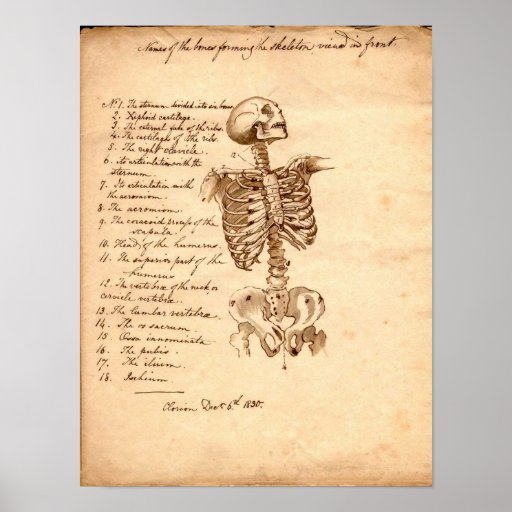 Names of the bones forming the skeleton, viewed in front.
No. 1. The sternum divided into six bones
2. Xiphoid cartilage.
3. The external face of the ribs.
4. The cartilages of the ribs.
5. The right clavicle.
6. its articulation with the
sternum.
7. Its articulation with
the acromion.
8. The acromion.
9. The coracoid process of the
scapula.
10. Head of the humerus.
11. The superior part of the
humerus
12. The vertebræ of the neck, or
cervicle vertebræ.
13. The lumbar vertebræ.
14. The os sacrum.
15. Ossa innominata
16. The pubis.
17. The ilium.
18. Ischium
Dec. 6th 1830.
12